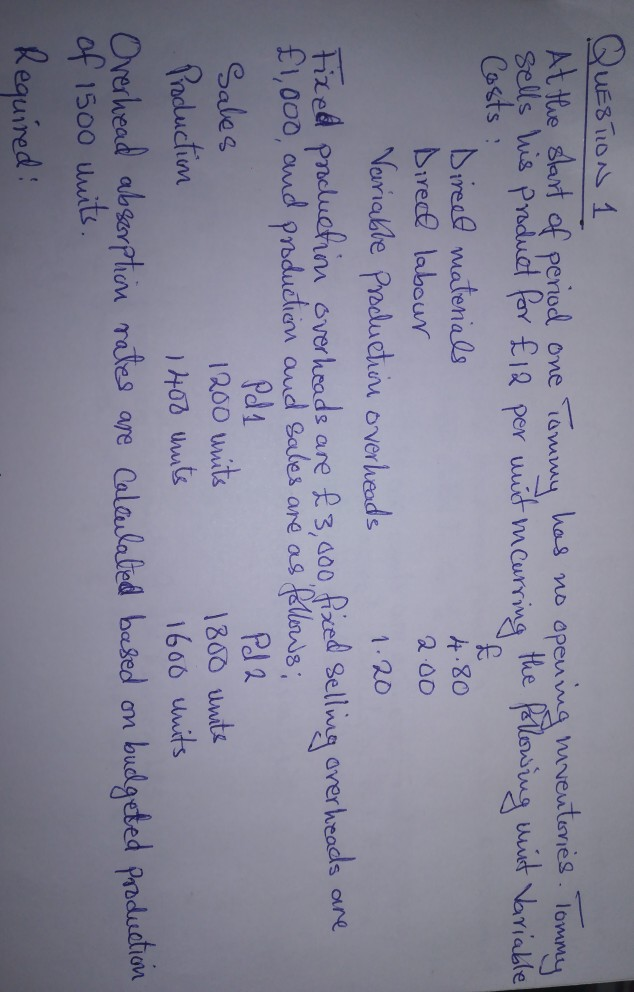 QUESTION 1
At the start of period one Tommy has no opening inventories. Tommy
sells his product for £12 per unit incurring the following unit variable
Costs:
£
Direct materials 4.80
Direct labour 2.00
Variable production overheads 1.20
Fixed production overheads are £3,000, fixed selling overheads are
£1,000, and production and sales are as follows:
Pd1 Pd2
Sales 1200 units 1800 units
Production 1400 units 1600 units
Overhead absorption rates are calculated based on budgeted production
of 1500 units.
Required: